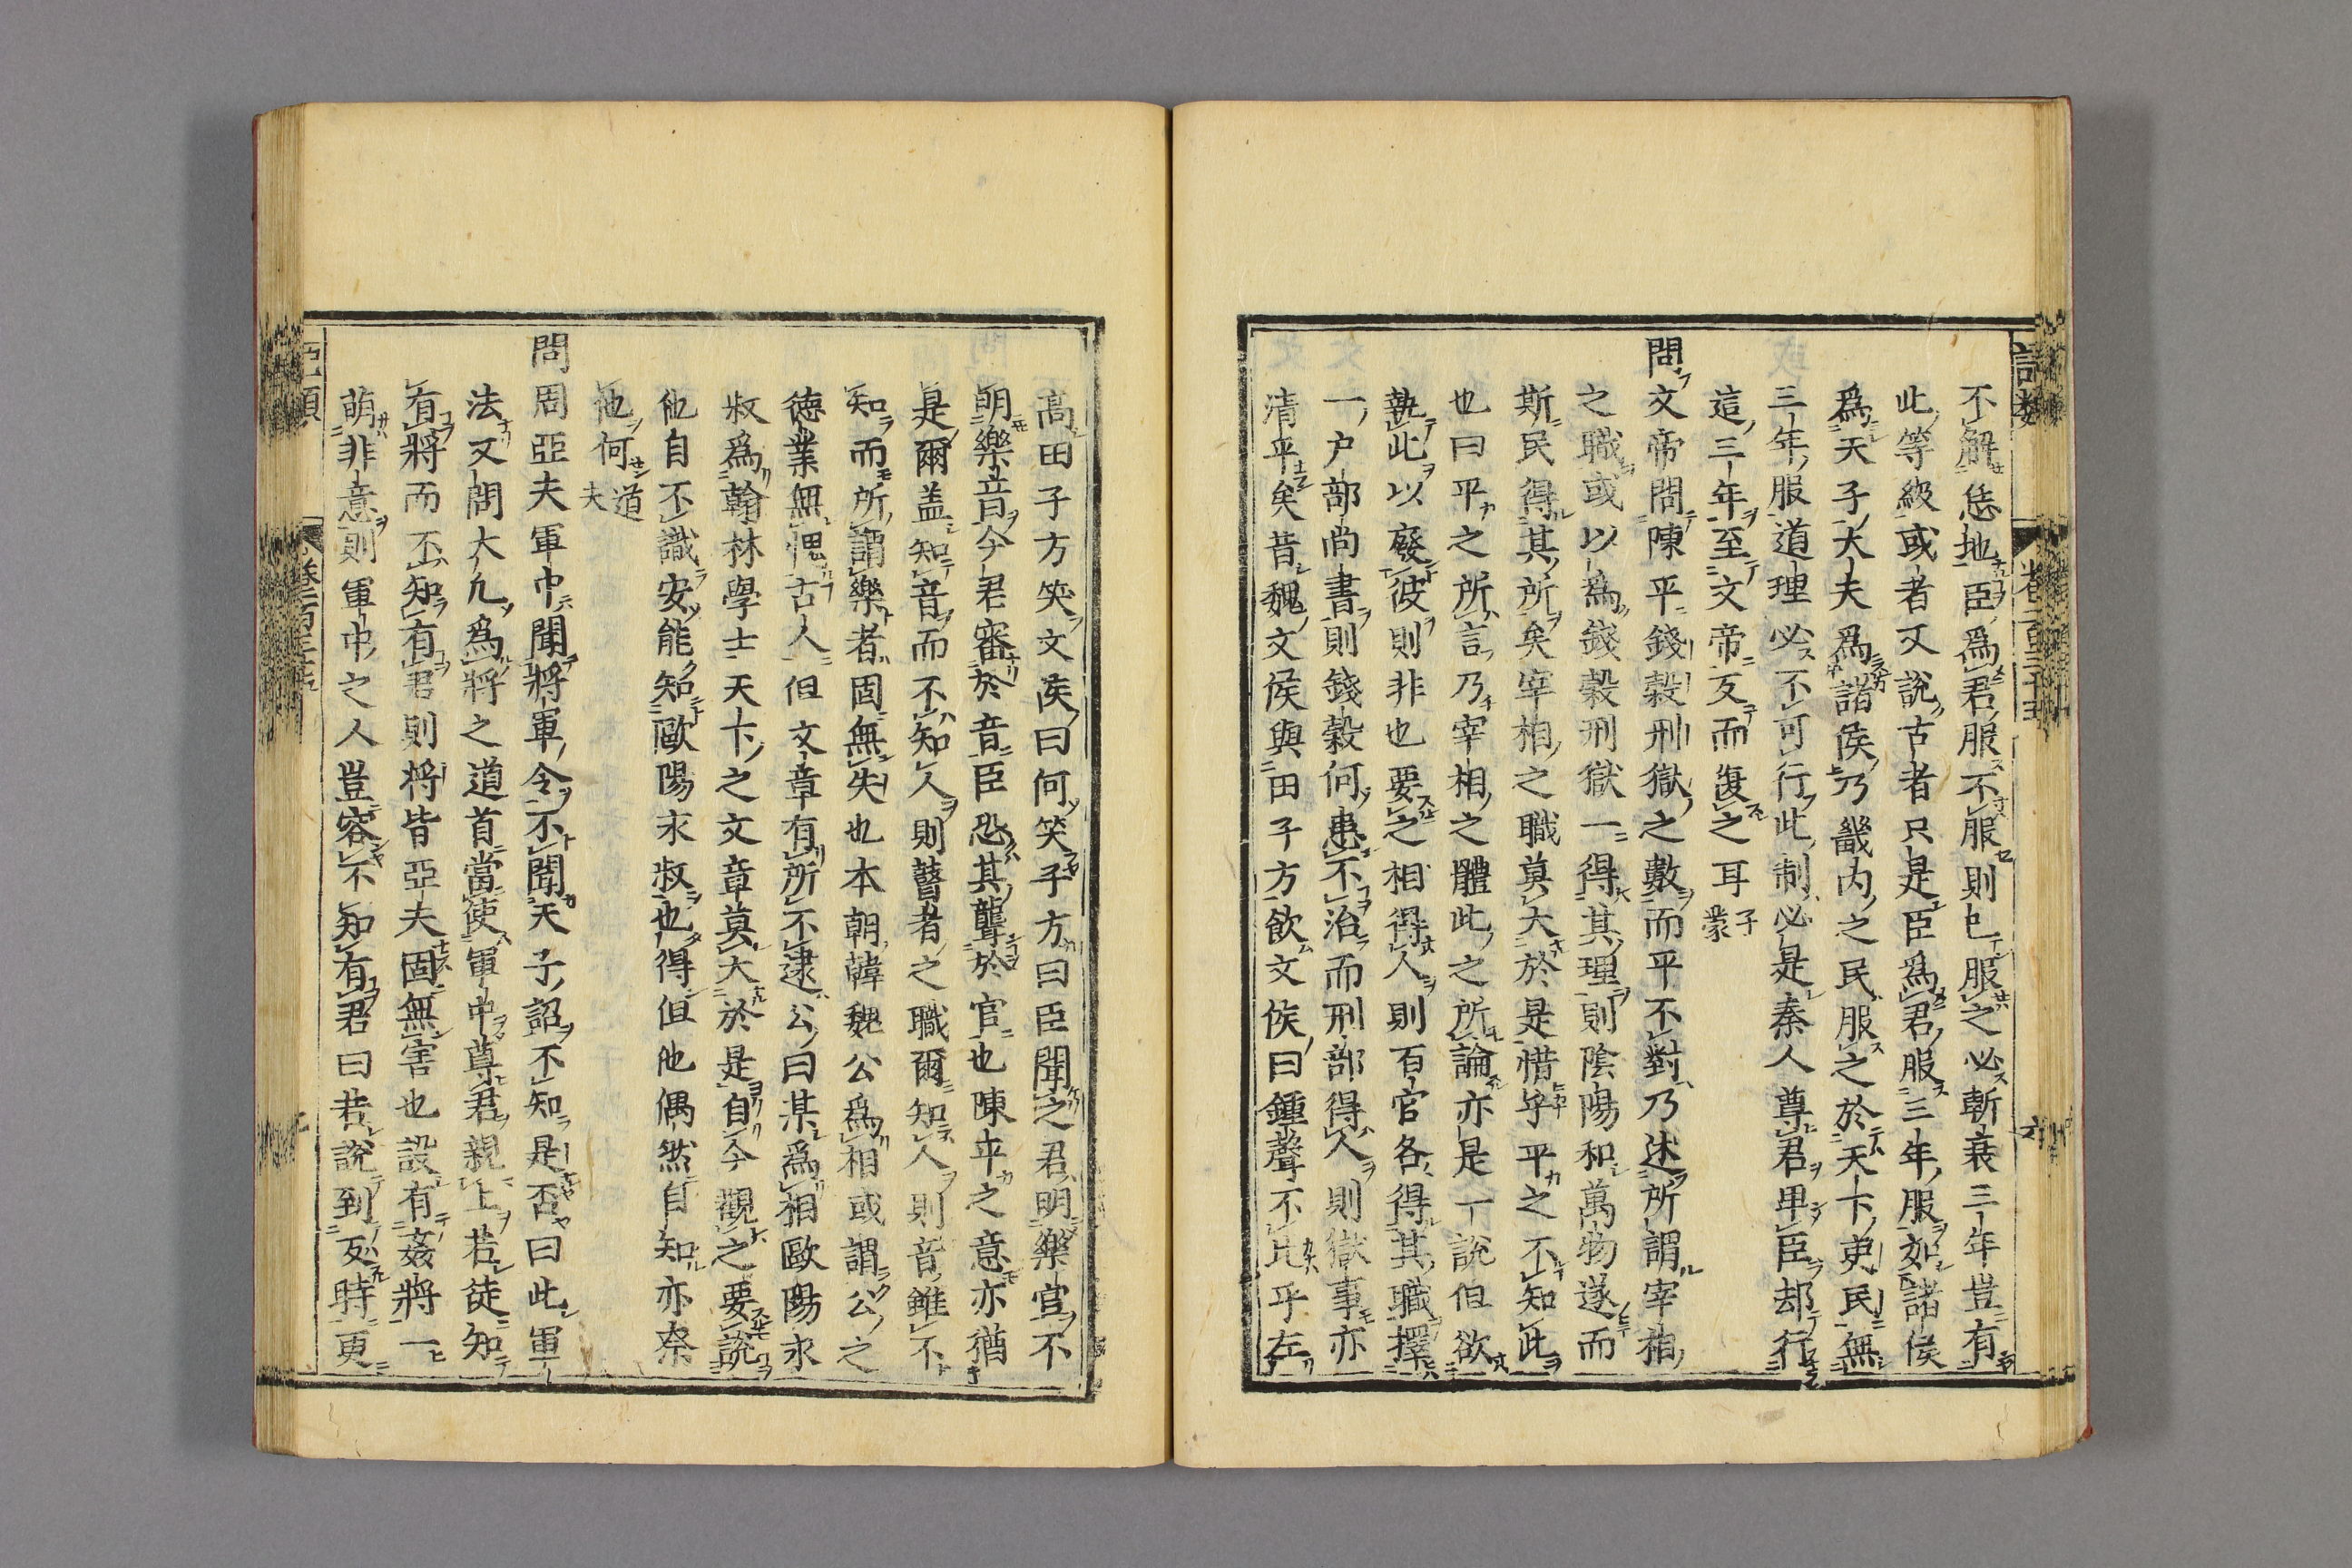 語類
卷一百三十五
六
不解恁地臣爲君服不服則已服之必斬衰三年豈有
此等級或者又說古者只是臣爲君服三年服如諸侯
爲天子大夫爲諸侯乃畿内之民服之於天下吏民無
三年服道理必不可行此制必是秦人尊君卑臣却行
這三年至文帝反而復之耳 子蒙
問文帝問陳平錢穀刑獄之數而平不對乃述所謂宰相
之職或以爲錢穀刑獄一得其理則陰陽和萬物遂而
斯民得其所矣宰相之職莫大於是惜乎平之不知此
也曰平之所言乃宰相之體此之所論亦是一說但欲
執此以廢彼則非也要之相得人則百官各得其職擇
一户部尚書則錢穀何患不治而刑部得人則獄事亦
清平矣昔魏文侯與田子方飲文侯曰鍾聲不比乎左
高田子方笑文侯曰何笑子方曰臣聞之君明樂官不
明樂音今君審於音臣恐其聾於官也陳平之意亦猶
是爾盖知音而不知人則瞽者之職爾知人則音雖不
知而所謂樂者固無失也本朝韓魏公爲相或謂公之
德業無愧古人但文章有所不逮公曰某爲相歐陽永
叔爲翰林學士天下之文章莫大於是自今觀之要說
他自不識安能知歐陽永叔也得但他偶然自知亦奈
他何 道夫
問周亞夫軍中聞將軍令不聞天子詔不知是否曰此軍
法又問大凡爲將之道首當使軍中尊君親上若徒知
有將而不知有君則將皆亞夫固無害也設有姦將一
萌非意則軍中之人豈容不知有君曰若說到反時更